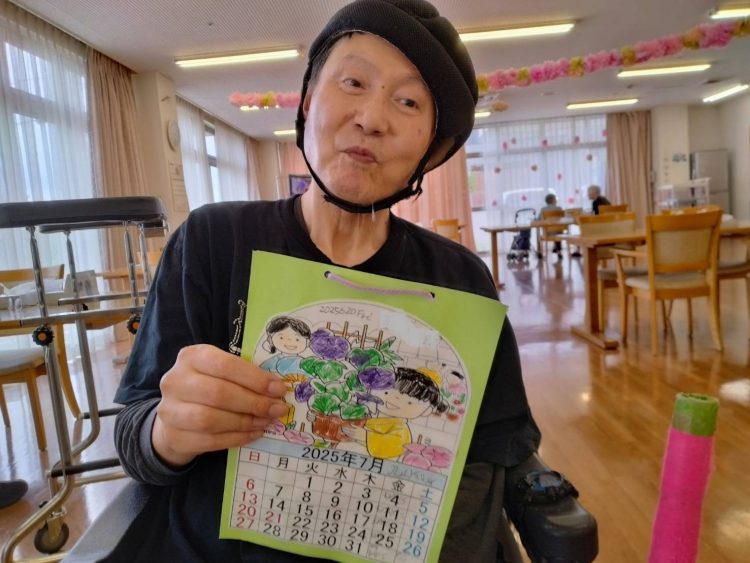 2025.6.20 Fri
2025年7月
日 月 火 水 木 金 土
1 2 3 4 5
6 7 8 9 10 11 12
13 14 15 16 17 18 19
20 21 22 23 24 25 26
27 28 29 30 31